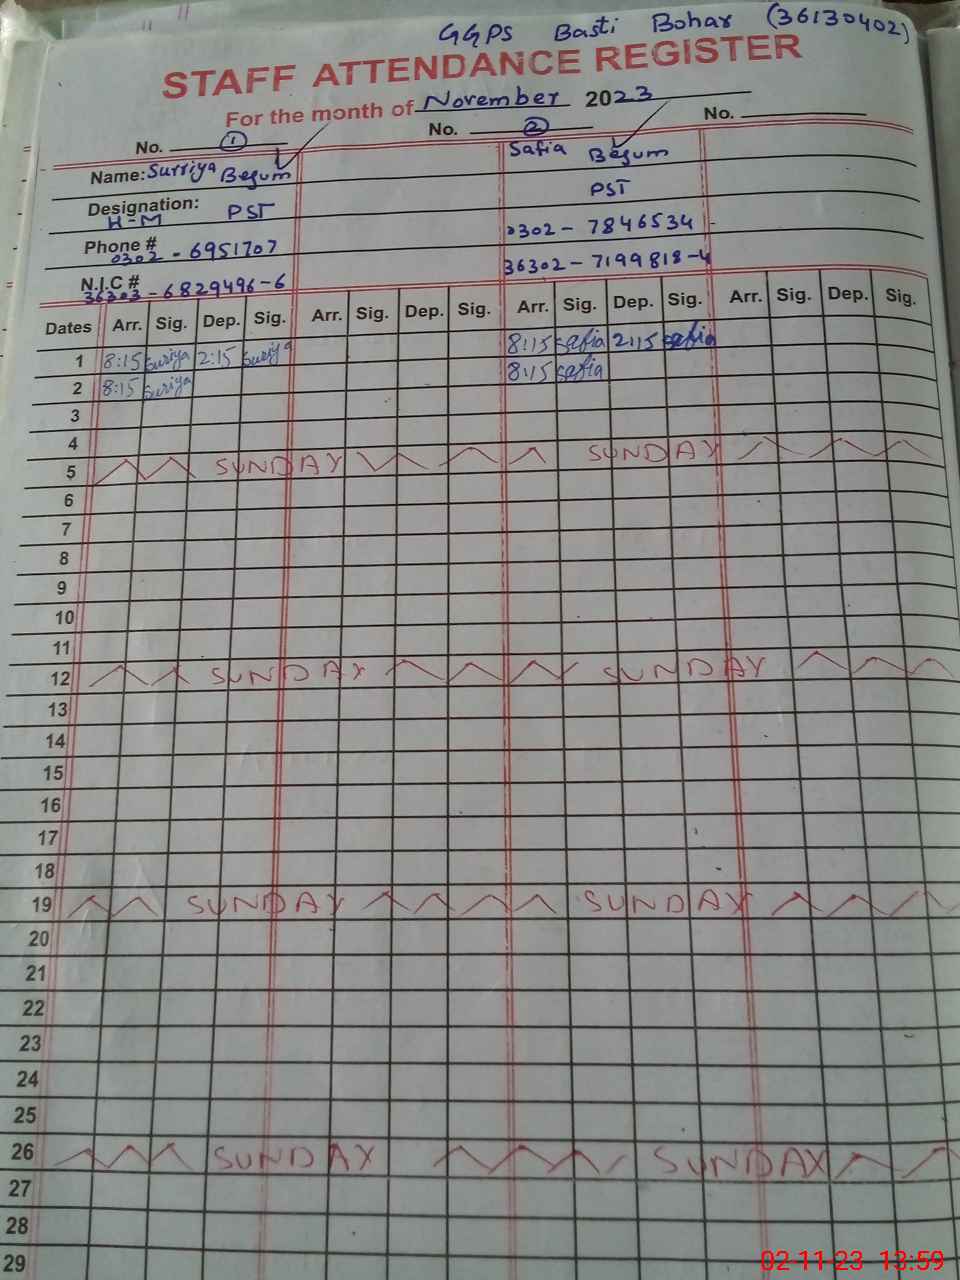 GGPS Basti Bohar (36130402)
STAFF ATTENDANCE REGISTER
For the month of November 2023
No. 1 No. 2 No.
Name: Surriya Begum Safia Begum
Designation: H-M PST PST
Phone # 0302 - 6951707 0302 - 7846534
N.I.C # 36303 - 6829496-6 36302 - 7199818-4
Dates Arr. Sig. Dep. Sig. Arr. Sig. Dep. Sig. Arr. Sig. Dep. Sig. Arr. Sig. Dep. Sig.
1 8:15 Suriya 2:15 Suriya 8:15 Safia 2:15 Safia
2 8:15 Suriya 8:15 Safia
3
4
5 SUNDAY SUNDAY
6
7
8
9
10
11
12 SUNDAY SUNDAY
13
14
15
16
17
18
19 SUNDAY SUNDAY
20
21
22
23
24
25
26 SUNDAY SUNDAY
27
28
29
02-11-23 13:59